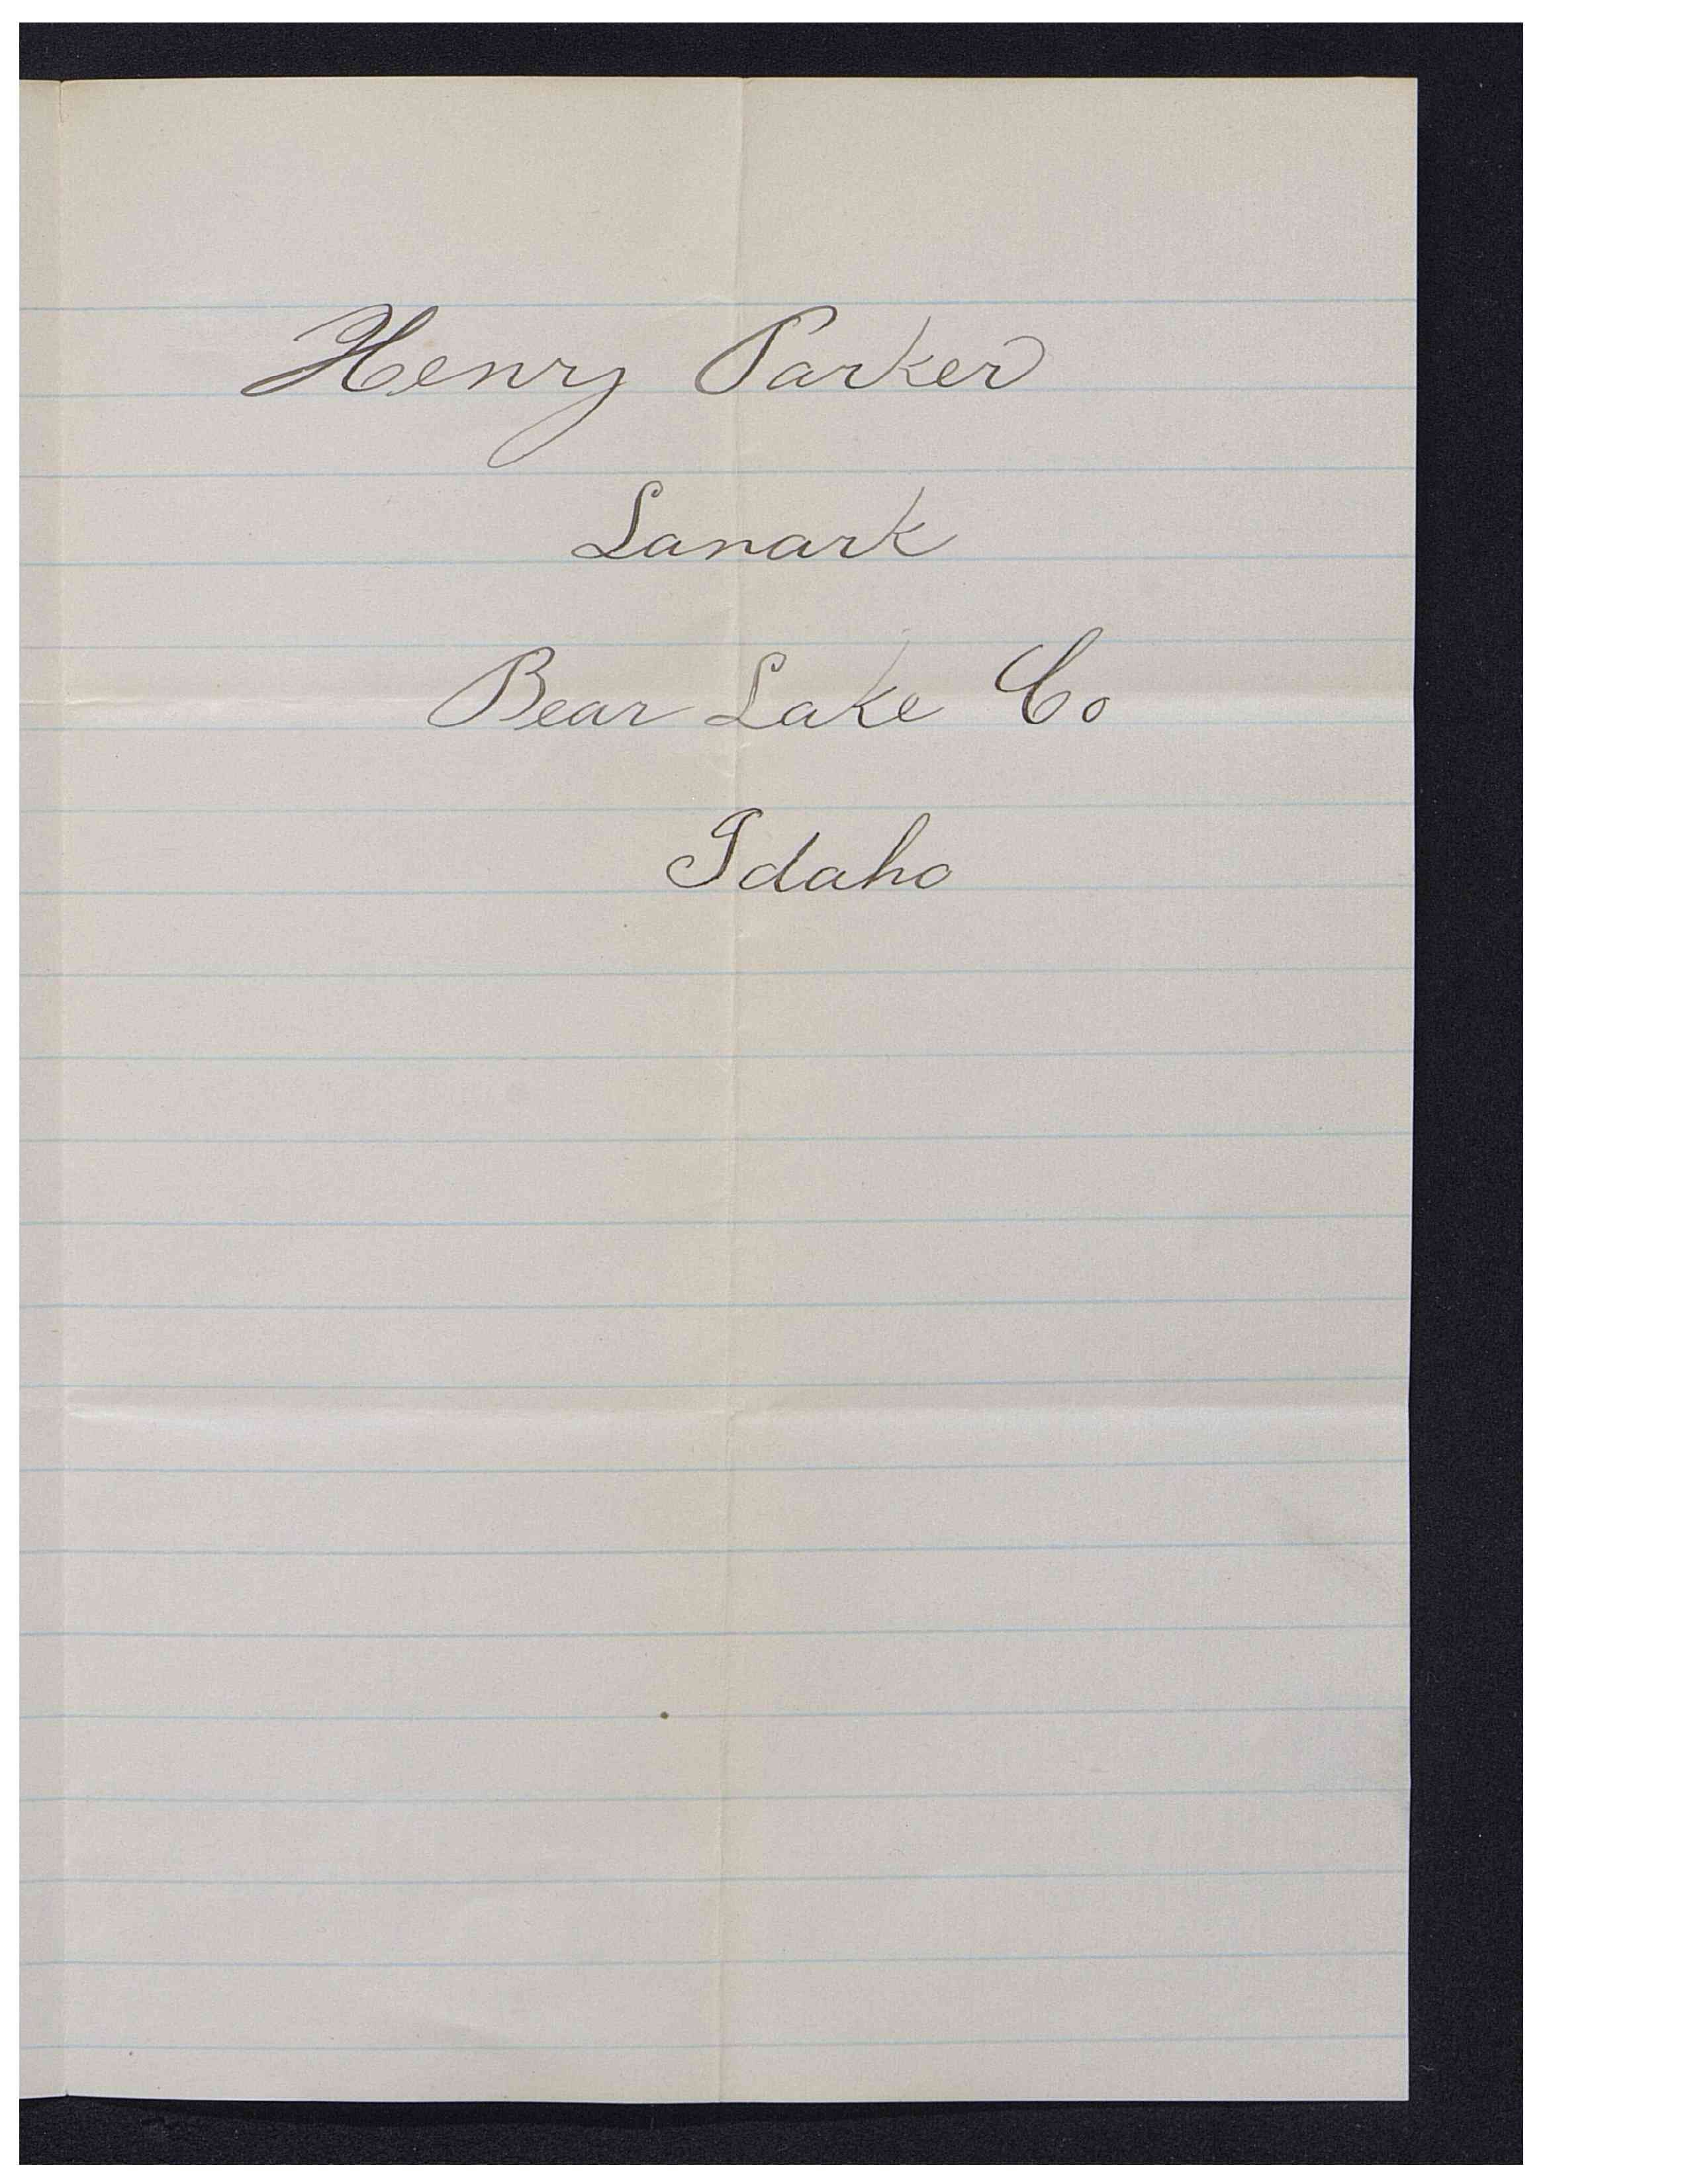 Henry Parker
Lanark
Bear Lake Co
Idaho